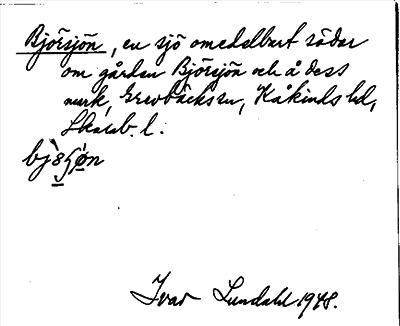 Björsjön, en sjö omedelbart söder
om gården Björsjön och å dess
mark, Grevbäcks sn, Kåkinds hd,
Skarab. l.
Ivar Lundahl 1948.